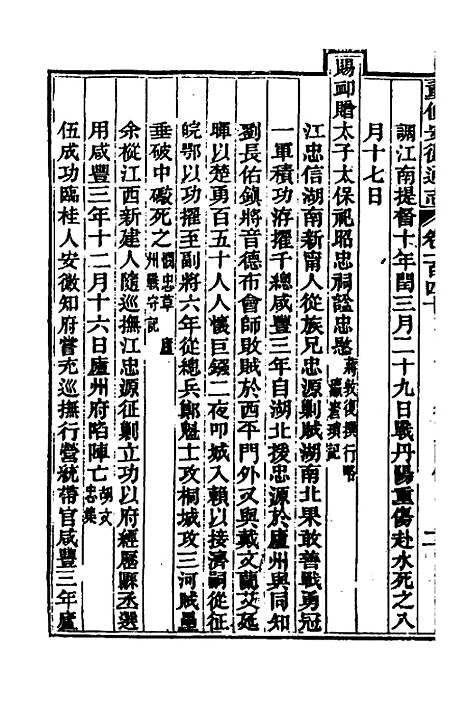 重修安徽通志 卷二百四十
調江南提督十年閏三月二十九日戰丹陽重傷赴水死之八
月十七日
賜卹贈太子太保祀昭忠祠諡忠愍蔣敦復撰行略
江忠信湖南新甯人從族兄忠源剿賊湖南北果敢善戰勇冠
一軍積功洊擢千總咸豐三年自湖北援忠源於廬州與同知
劉長佑鎮將音德布會師敗賊於西平門外又與戴文蘭艾延
暉以楚勇百五十人人懷巨鏹二夜叩城入賴以接濟嗣從征
皖鄂以功擢至副將六年從總兵鄭魁士攻桐城攻三河賊壘
垂破中礮死之憫忠草 廬州戰守記
余從江西新建人隨巡撫江忠源征剿立功以府經歷縣丞選
用咸豐三年十二月十六日廬州府陷陣亡胡文忠集
伍成功臨桂人安徽知府嘗充巡撫行營統帶官咸豐三年廬